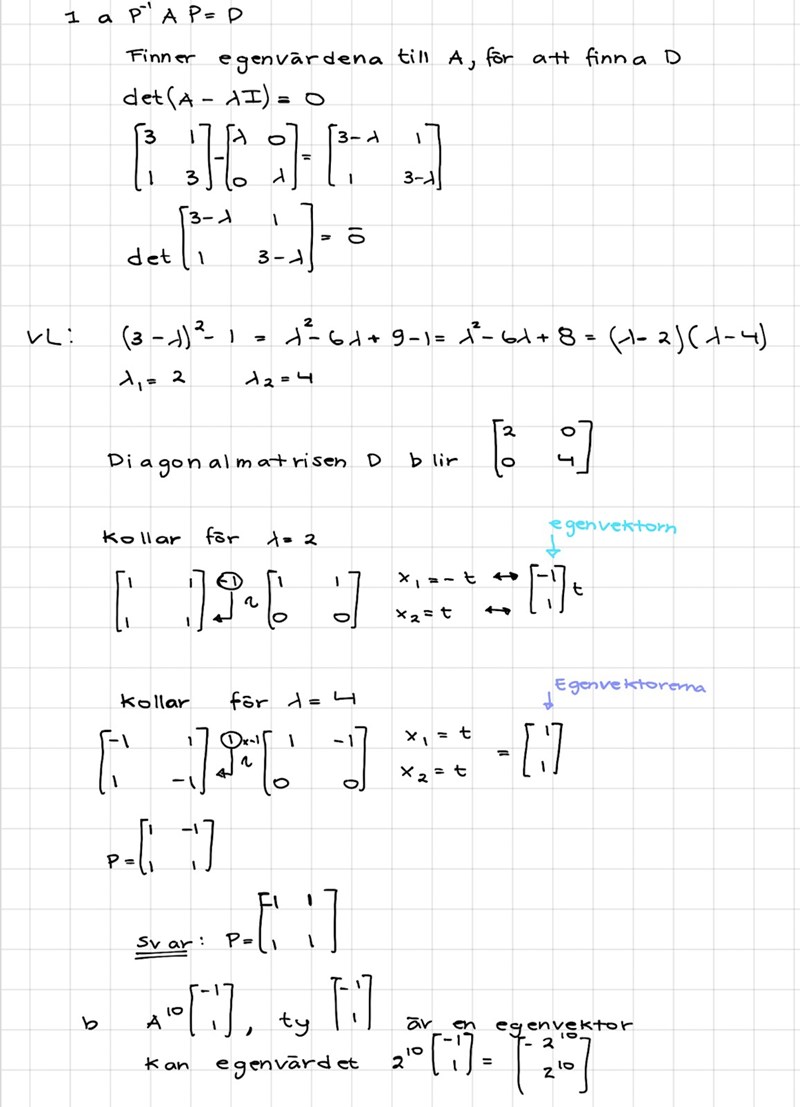 1 a P⁻¹ A P = D
Finner egenvärdena till A, för att finna D
det(A - λI) = 0
[3 1; 1 3] - [λ 0; 0 λ] = [3-λ 1; 1 3-λ]
det [3-λ 1; 1 3-λ] = 0̄
VL: (3-λ)² - 1 = λ² - 6λ + 9 - 1 = λ² - 6λ + 8 = (λ - 2)(λ - 4)
λ₁ = 2 λ₂ = 4
Diagonalmatrisen D blir [2 0; 0 4]
egenvektorn
Kollar för λ = 2
[1 1; 1 1] (-1) ~ [1 1; 0 0] x₁ = -t ↔ x₂ = t ↔ [-1; 1] t
Egenvektorerna
Kollar för λ = 4
[-1 1; 1 -1] (1) x-1 ~ [1 -1; 0 0] x₁ = t x₂ = t = [1; 1]
P = [1 -1; 1 1]
Svar: P = [-1 1; 1 1]
b A¹⁰ [-1; 1], ty [-1; 1] är en egenvektor
kan egenvärdet 2¹⁰ [-1; 1] = [-2¹⁰; 2¹⁰]